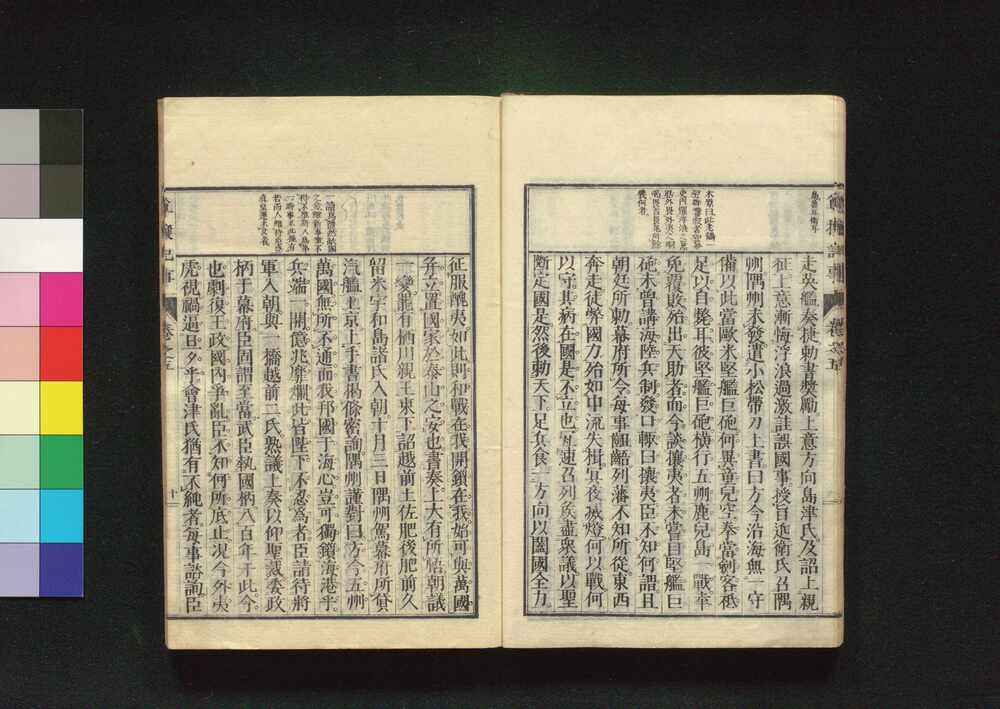 走英艦奏捷勅書奬勵上意方向島津氏及詔上親
征上意漸悔浮浪過激詿誤國事授旨近衛氏召隅
州隅州未發遣小松帶刀上書曰方今沿海無一守
備以此當歐米堅艦巨砲何異童兒空拳當劍客祗
足以自斃耳彼堅艦巨砲橫行五州鹿兒島一戰幸
免覆敗殆出天助者而今談攘夷者未嘗目堅艦巨
砲未曾講海陸兵制發口輙曰攘夷臣不知何謂且
朝廷所勅幕府所令每事齟齬列藩不知所從東西
奔走徒弊國力殆如中流失楫眞夜滅燈何以戰何
以守其柄在國是不立也宜速召列矦盡衆議以聖
斷定國是然後勅天下足兵食一方向以闔國全力
征服醜夷如此則和戰在我開鎖在我始可與萬國
幷立置國家於泰山之安也書奏上大有所悟朝議
一變罷有栖川親王東下詔越前土佐肥後肥前久
留米宇和島諸氏入朝十月三日隅州駕幕府所貸
汽艦上京上手書揭條密詢隅州謹對曰方今五州
萬國無所不通而我邦國于海心豈可獨鎖海港乎
兵端一開億兆糜爛此皆陛下不忍爲者臣請待將
軍入朝與一橋越前二氏熟議上奏以仰聖裁委政
柄于幕府臣固謂至當武臣執國柄八百年于此今
也劇復王政國內爭亂臣不知何所底止況今外夷
虎視禍逼旦夕乎會津氏猶有不純者每事諮詢臣
卷之五
十一